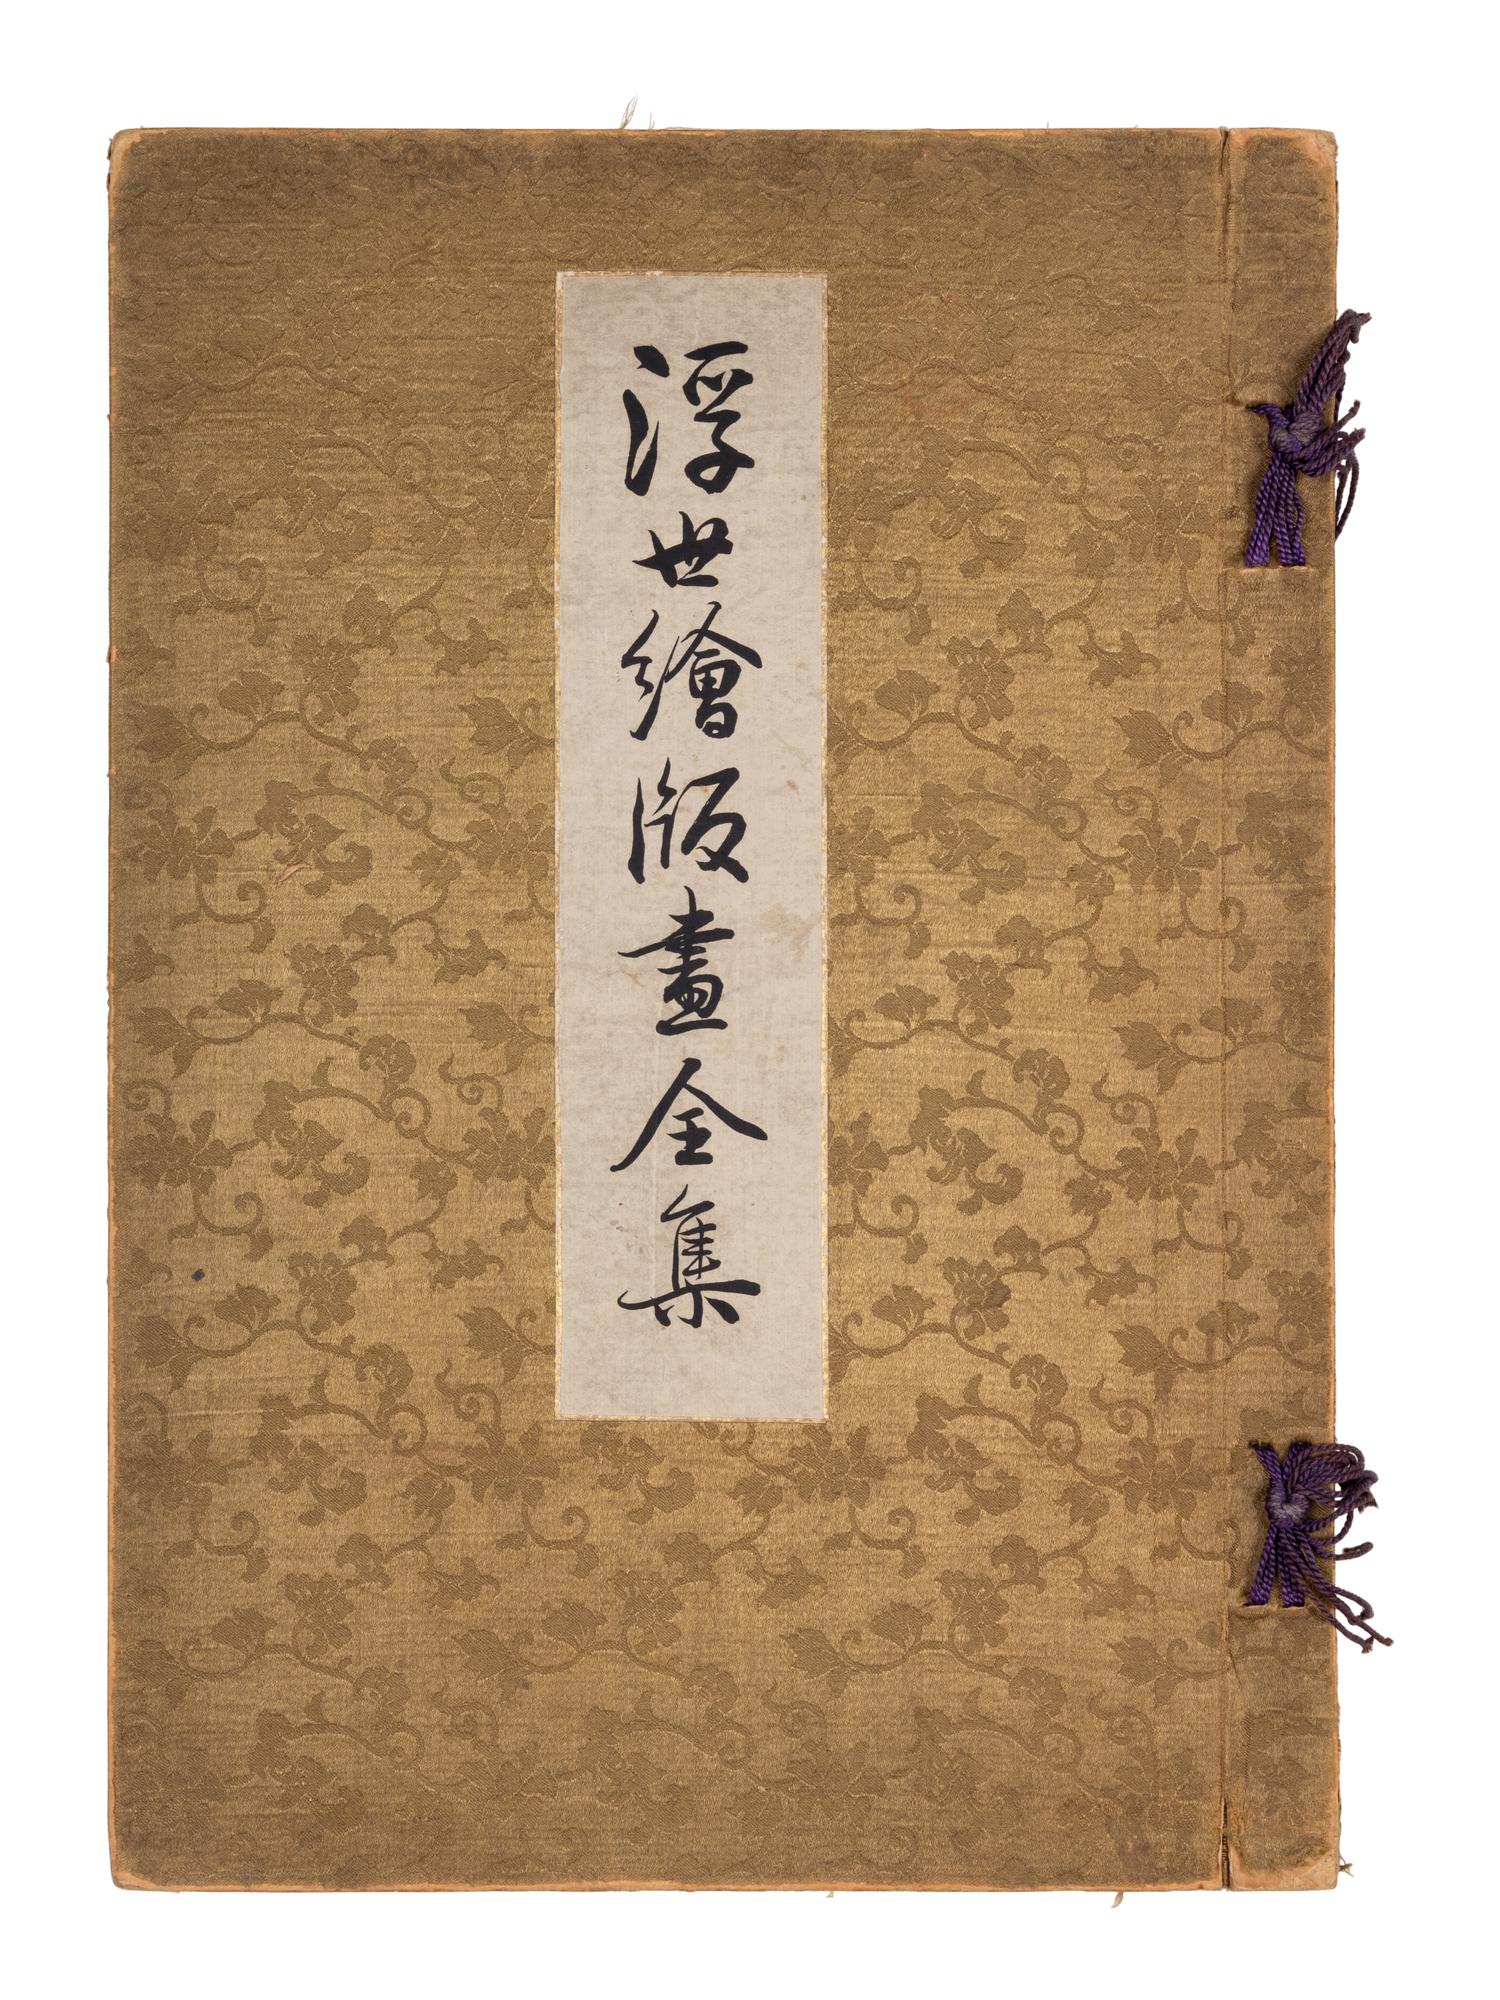 浮世繪版畫全集